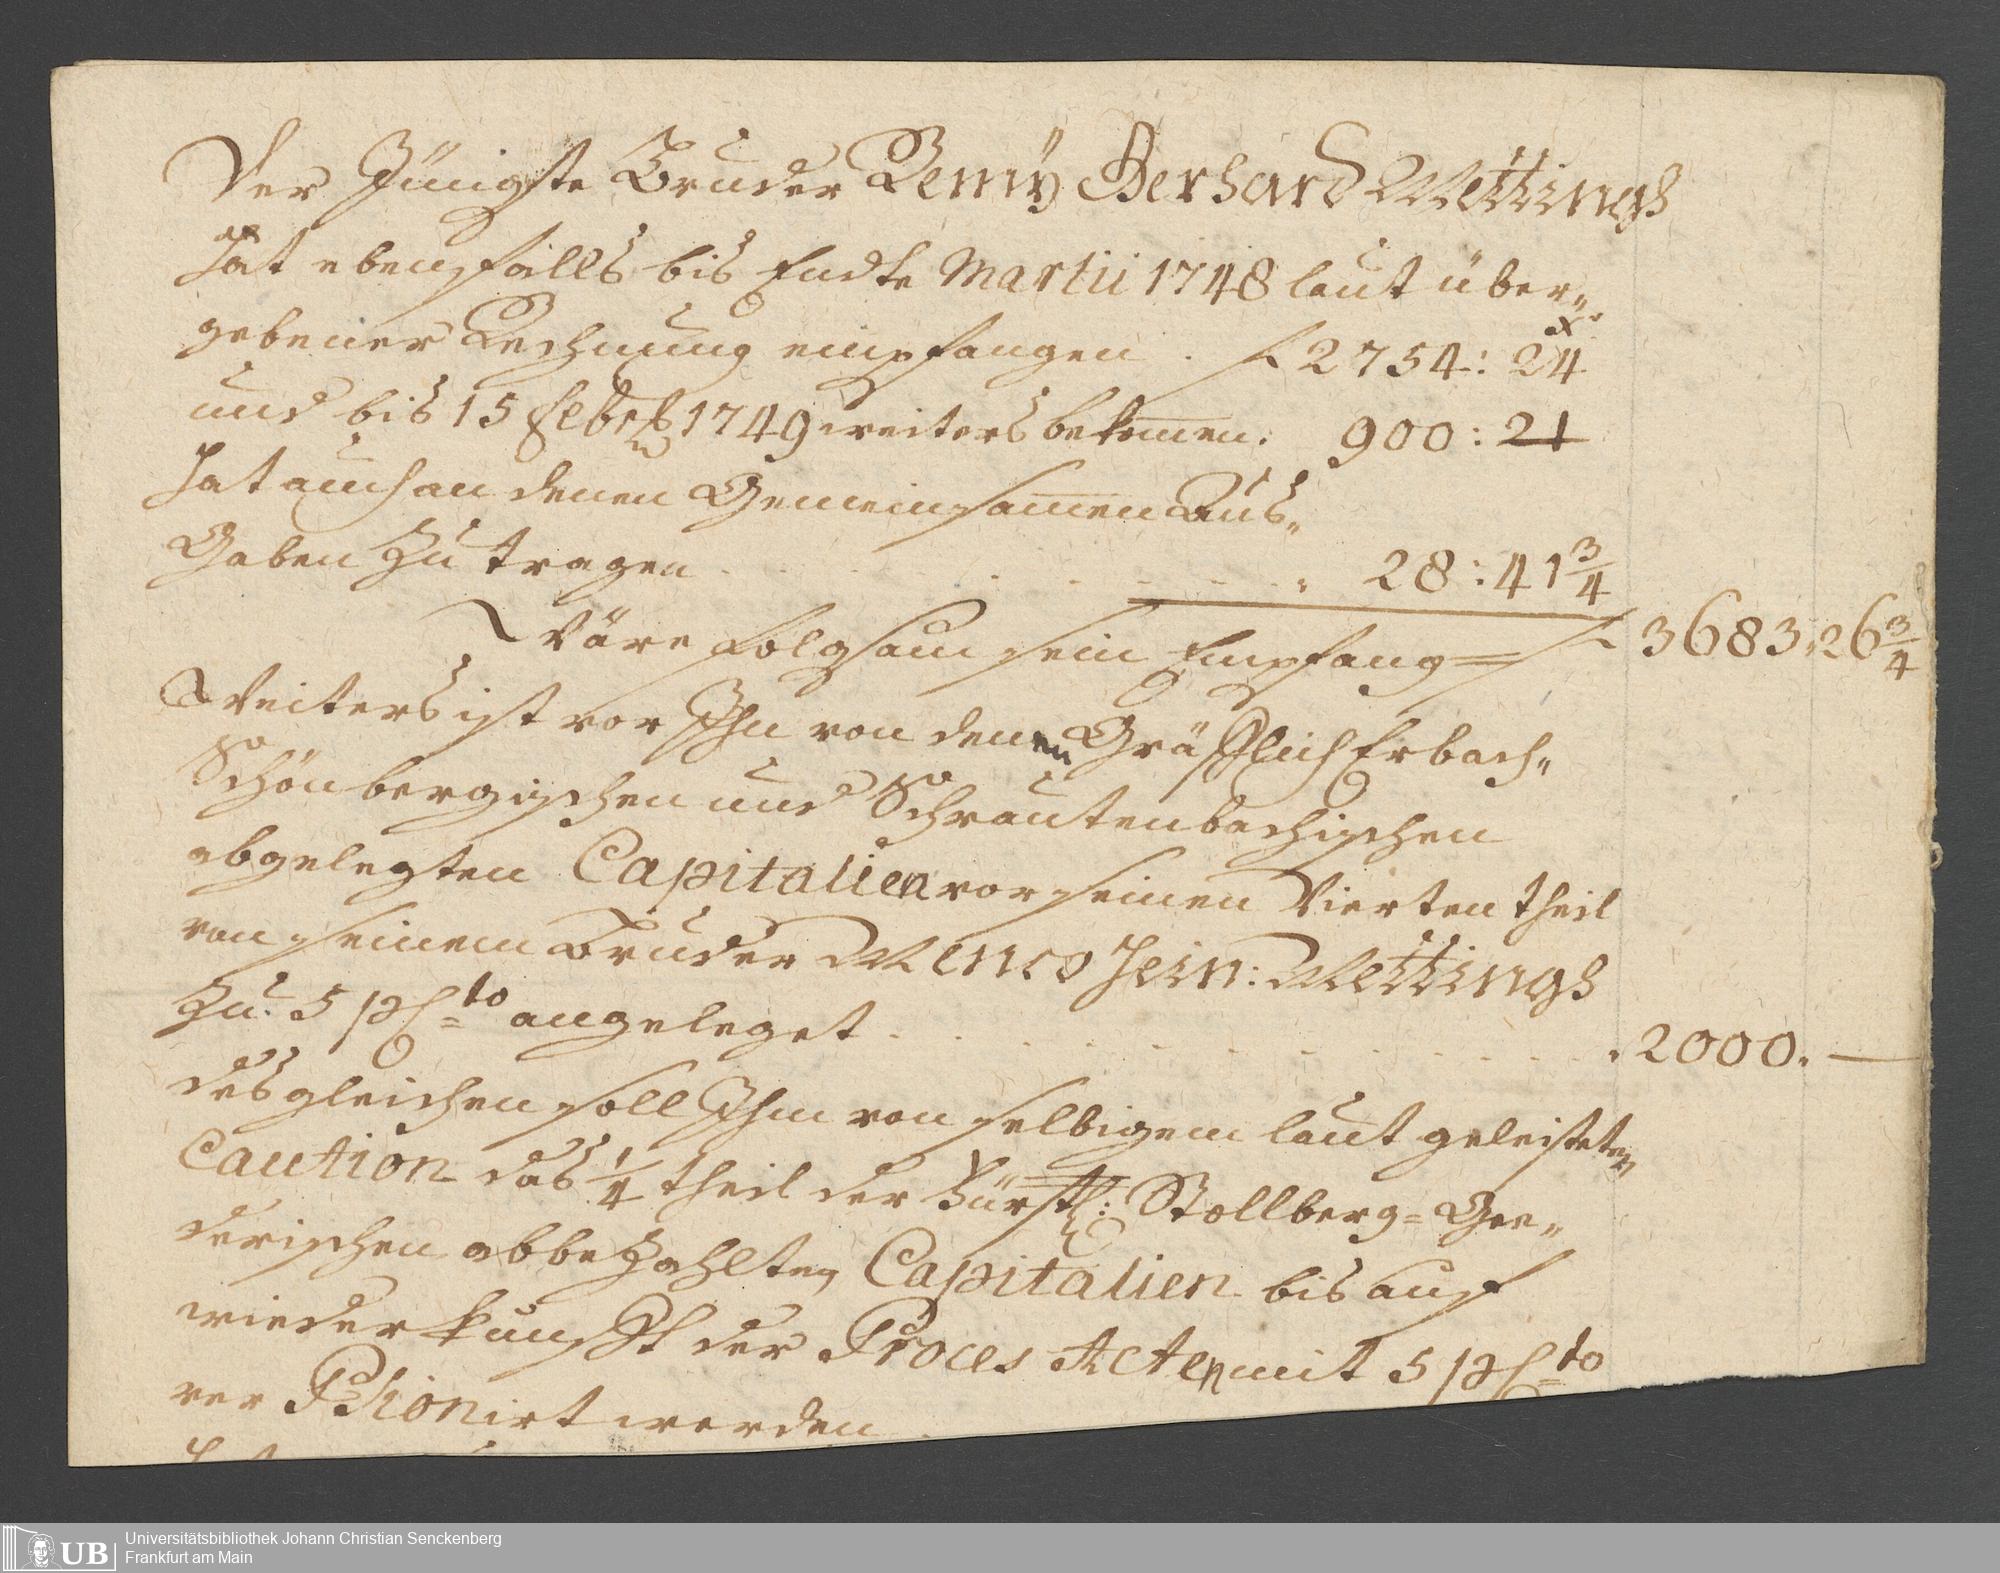 Der Jüngste Bruder Remÿ Gerhard Mettingh
hat ebenfalls bis Endte Martii 1748 laut über„
gebener Rechnung empfangen . f 2754: 24 xr
und bis 15 Febr 1749 weiters bekomen. 900: 21
hat auch an denen Gemeinsamen Aus„
Gaben Zu tragen . . . . . . . . . . 28: 41 3/4
Wäre folgsam sein Empfang = f 3683. 26 3/4
Weiters ist vor Ihn von denen Gräfflich Erbach„
Schönbergischen und Schrautenbachischen
abgelegten Capitalien vor seinen Vierten theil
von seinem Bruder Menco Hein: Mettingh
Zu 5 pCto angeleget . . . . . . . . . . . 2000. —
desgleichen soll Ihm von selbigem laut geleisteten
Caution das 1/4 theil der Fürstl: Stollberg= Gee„
derischen abbezahlten Capitalien bis auf
wiederkunfft der Proces Acten mit 5 pCto
ver Pensionirt werden .
Universitätsbibliothek Johann Christian Senckenberg
Frankfurt am Main
UB